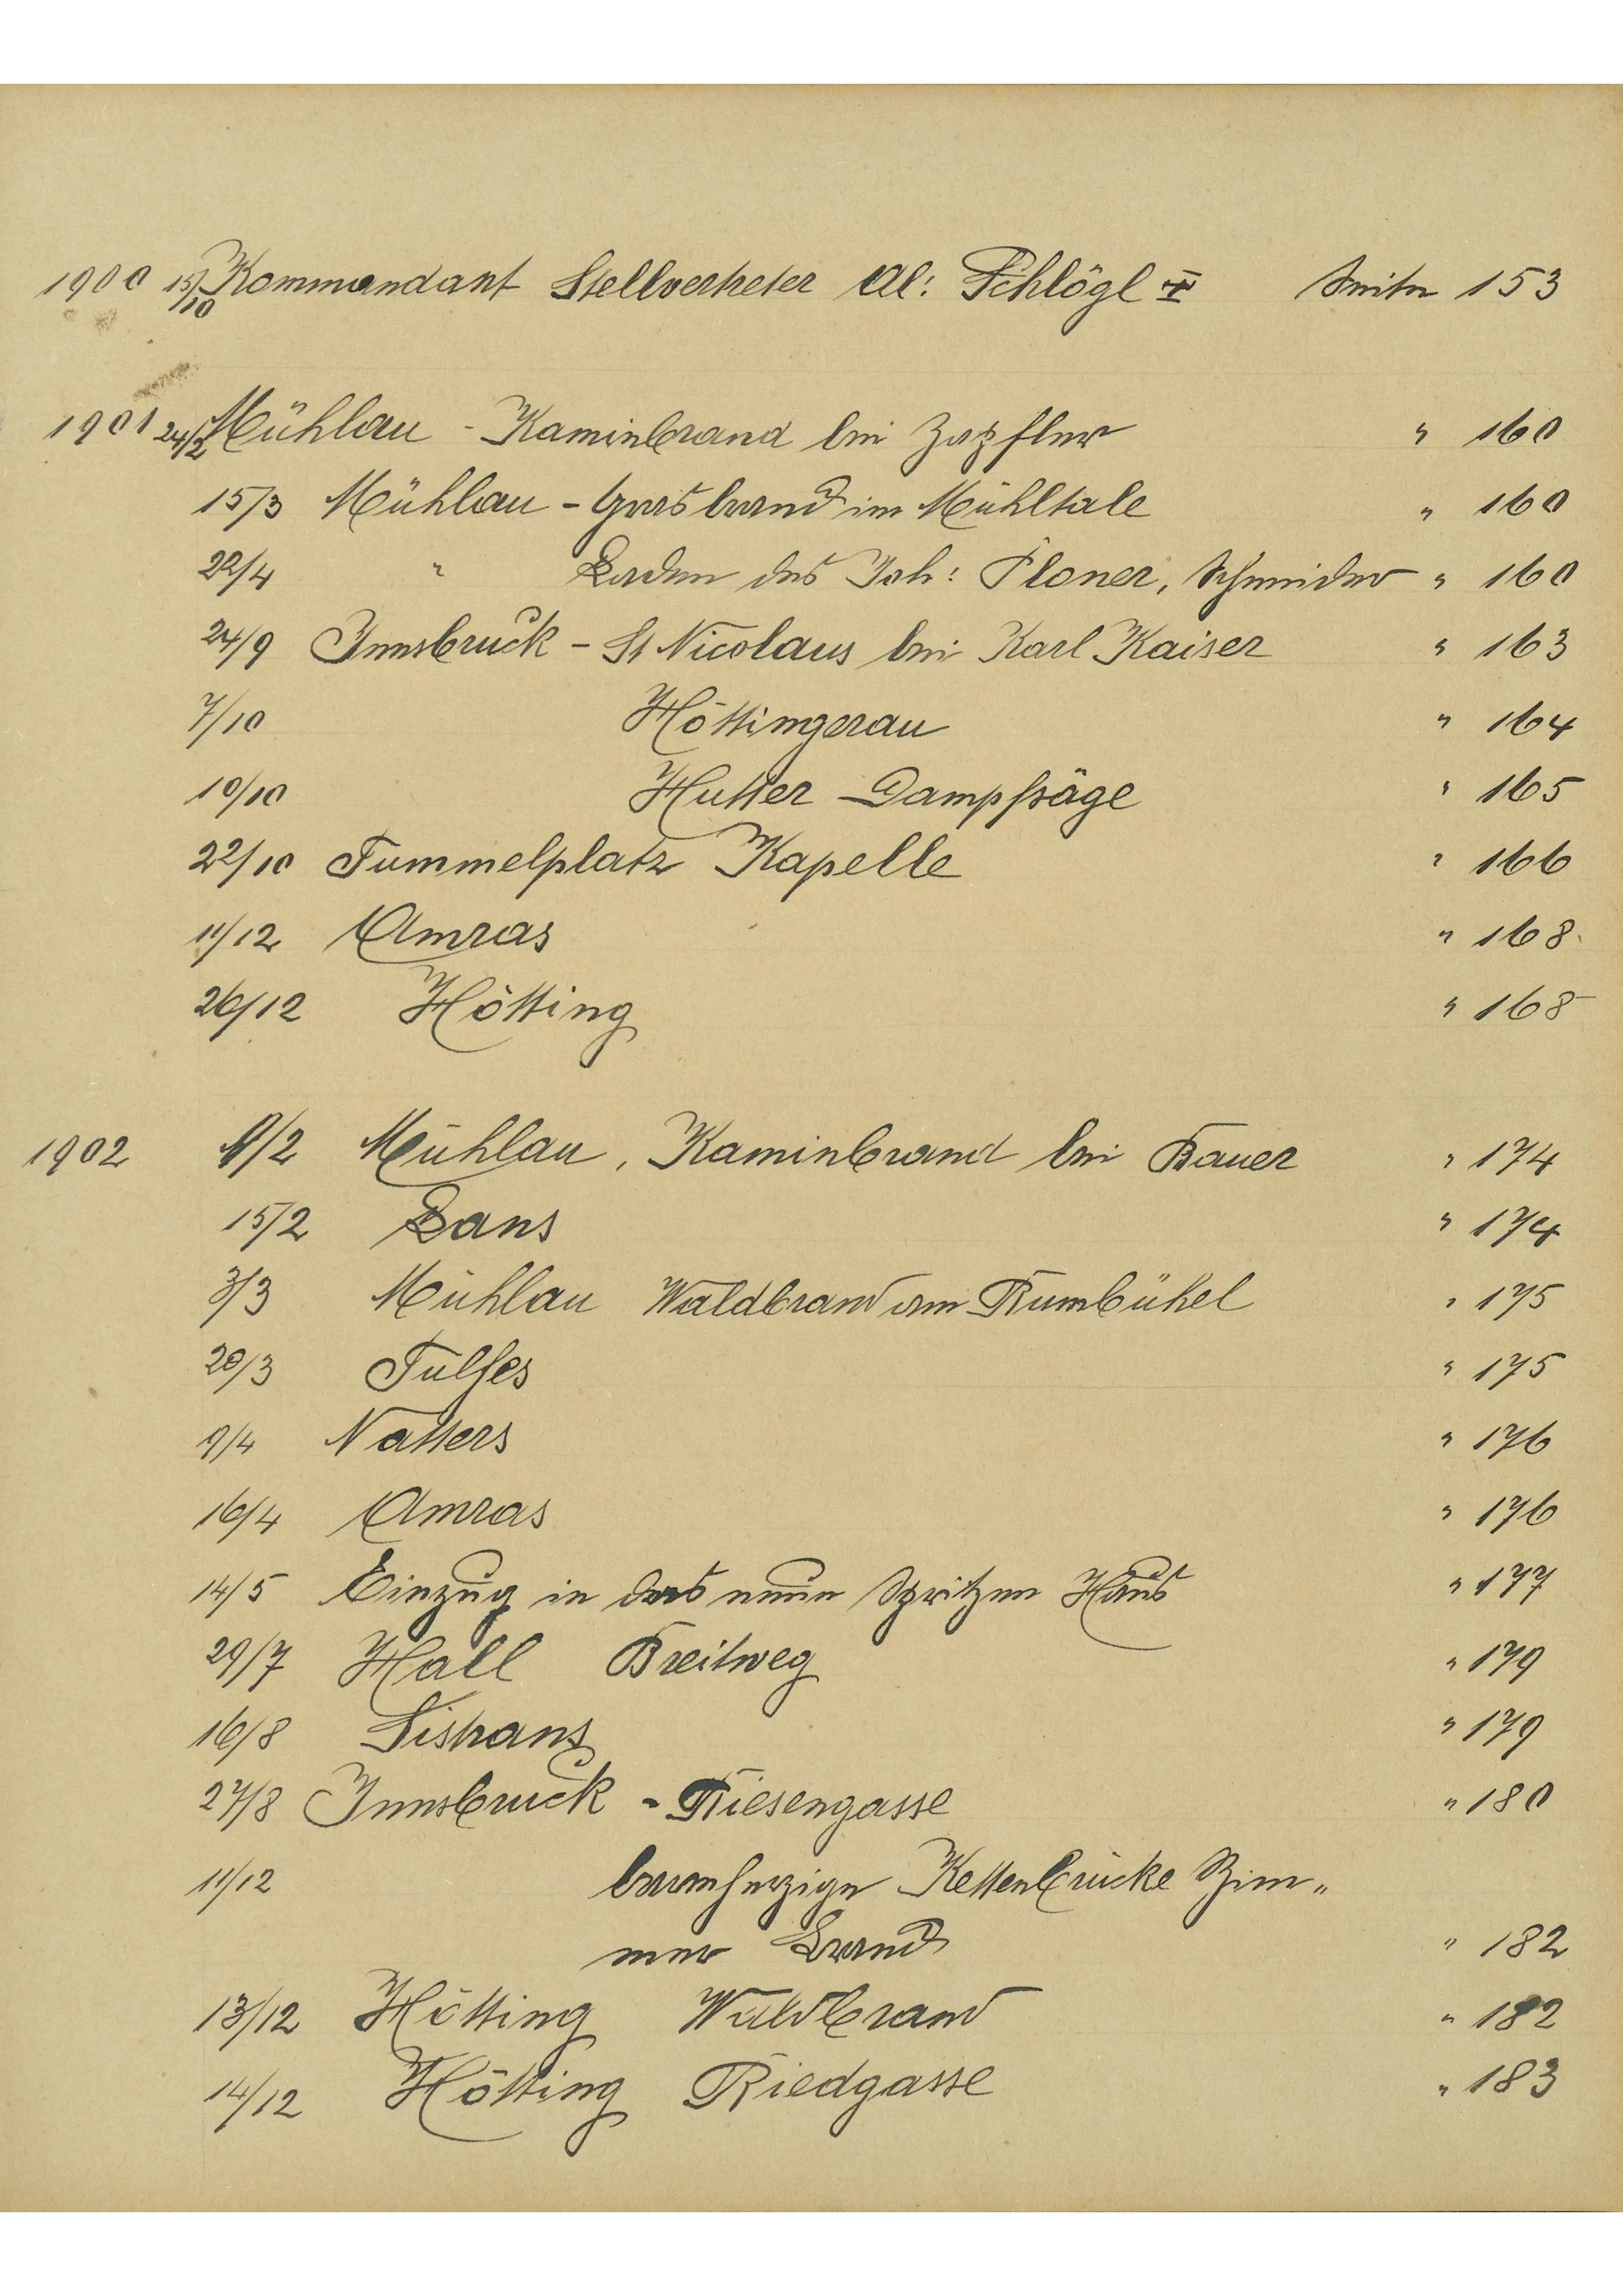 1900 15/10 Kommandant Stellvertreter Al: Schlögl I Seite 153
1901 24/2 Mühlau - Kaminbrand bei Zapfler " 160
15/3 Mühlau - Grasbrand im Mühltale " 160
22/4 " Laden des Joh: Ploner, Schneider " 160
24/9 Innsbruck - St Nicolaus bei Karl Kaiser " 163
7/10 Höttingerau " 164
10/10 Hutter Dampfsäge " 165
22/10 Tummelplatz Kapelle " 166
11/12 Amras " 168
26/12 Hötting " 168
1902 /2 Mühlau, Kaminbrand bei Bauer " 174
15/2 Lans " 174
3/3 Mühlau Waldbrand am Rumbühel " 175
20/3 Tulfes " 175
9/4 Natters " 176
16/4 Amras " 176
14/5 Einzug in das neue Spritzen Haus " 177
29/7 Hall Breitweg " 179
16/8 Sistrans " 179
27/8 Innsbruck - Riesengasse " 180
11/12 barmherzige Kettenbrücke Zim„
mer Brand " 182
13/12 Hötting Waldbrand " 182
14/12 Hötting Riedgasse " 183